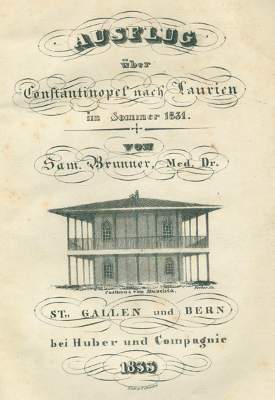 AUSFLUG
über
Constantinopel nach Taurien
im Sommer 1831.
VON
Sam. Brunner, Med. Dr.
ST. GALLEN und BERN
bei Huber und Compagnie
1833